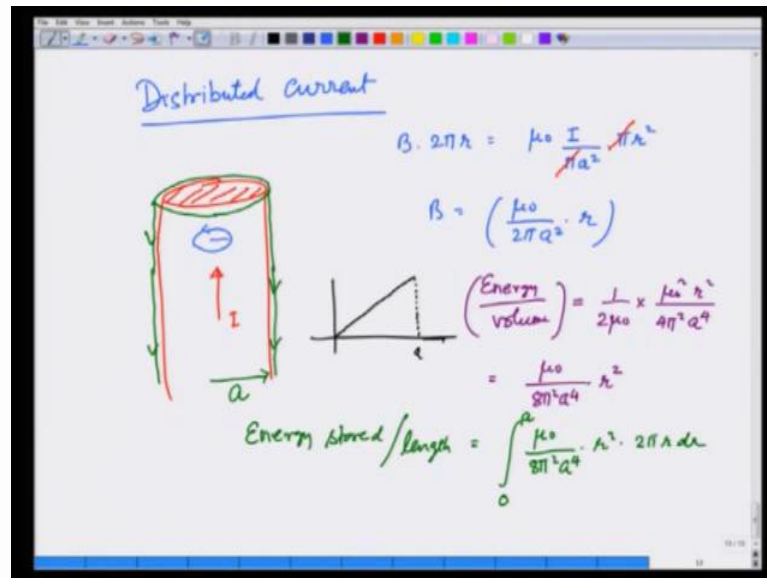 File Edit View Insert Actions Tools Help
Distributed current
B. 2πr = μ₀ I/πa² . πr²
B = (μ₀/2πa² . r)
I
a
a
(Energy/volume) = 1/2μ₀ × μ₀² r²/4π²a⁴
= μ₀/8π²a⁴ r²
Energy stored/length = ∫₀ᵃ μ₀/8π²a⁴ . r² . 2πr dr